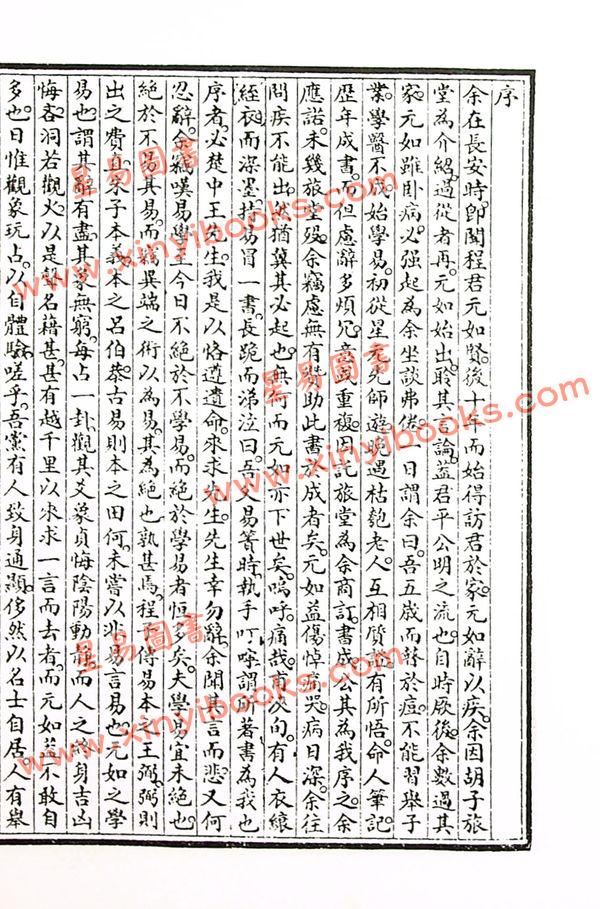 序
余在長安時。卽聞程君元如賢。後十年而始得訪君於家。元如辭以疾。余因胡子旅
堂為介紹。過從者再。元如始出。聆其言論。蓋君平公明之流也。自時厥後。余數過其
家。元如雖卧病。必强起為余坐談弗倦。一日謂余曰。吾五歲而聋於痘。不能習舉子
業。學醫不成。始學易。初從星元先師遊。晚遇枯匏老人。互相質證。有所悟。命人筆記。
歷年成書。而但慮辭多煩冗。意或重複。因託旅堂為余商訂。書成。公其為我序之。余
應諾。未幾旅堂殁。余竊慮無有贊助此書於成者矣。元如益傷悼痛哭。病日深。余往
問疾不能出。然猶冀其必起也。無何而元如亦下世矣。嗚呼。痛哉。再浹旬。有人衣縗
絰衣而深墨。持易冒一書。長跪而涕泣曰。吾父易簀時。執手叮嚀。謂所著書為我也
序者。必楚中王先生。我是以恪遵遺命。來求先生。先生幸勿辭。余聞其言而悲。又何
忍辭。余竊嘆易學至今日不絕於不學易。而絕於學易者恒多矣。夫學易宜未絕也。
絕於不易其易。而竊異端之術以為易。其為絕也孰甚焉。程正傳易本之王弼。弼則
出之費直。朱子本義。本之呂伯恭古易。則本之田何。未嘗以非易言易也。元如之學
易也。謂其辭有盡。其象無窮。每占一卦。觀其爻象貞悔陰陽動靜。而人之終身吉凶
悔吝。洞若觀火。以是聲名藉甚。甚有越千里以來求一言而去者。而元如益不敢自
多也。日惟觀象玩占。以自體驗。嗟乎。吾黨有人致身通顯。侈然以名士自居。人有舉
星易圖書
www.xinyibooks.com
星易圖書
www.xinyibooks.com
星易圖書
www.xinyibooks.com